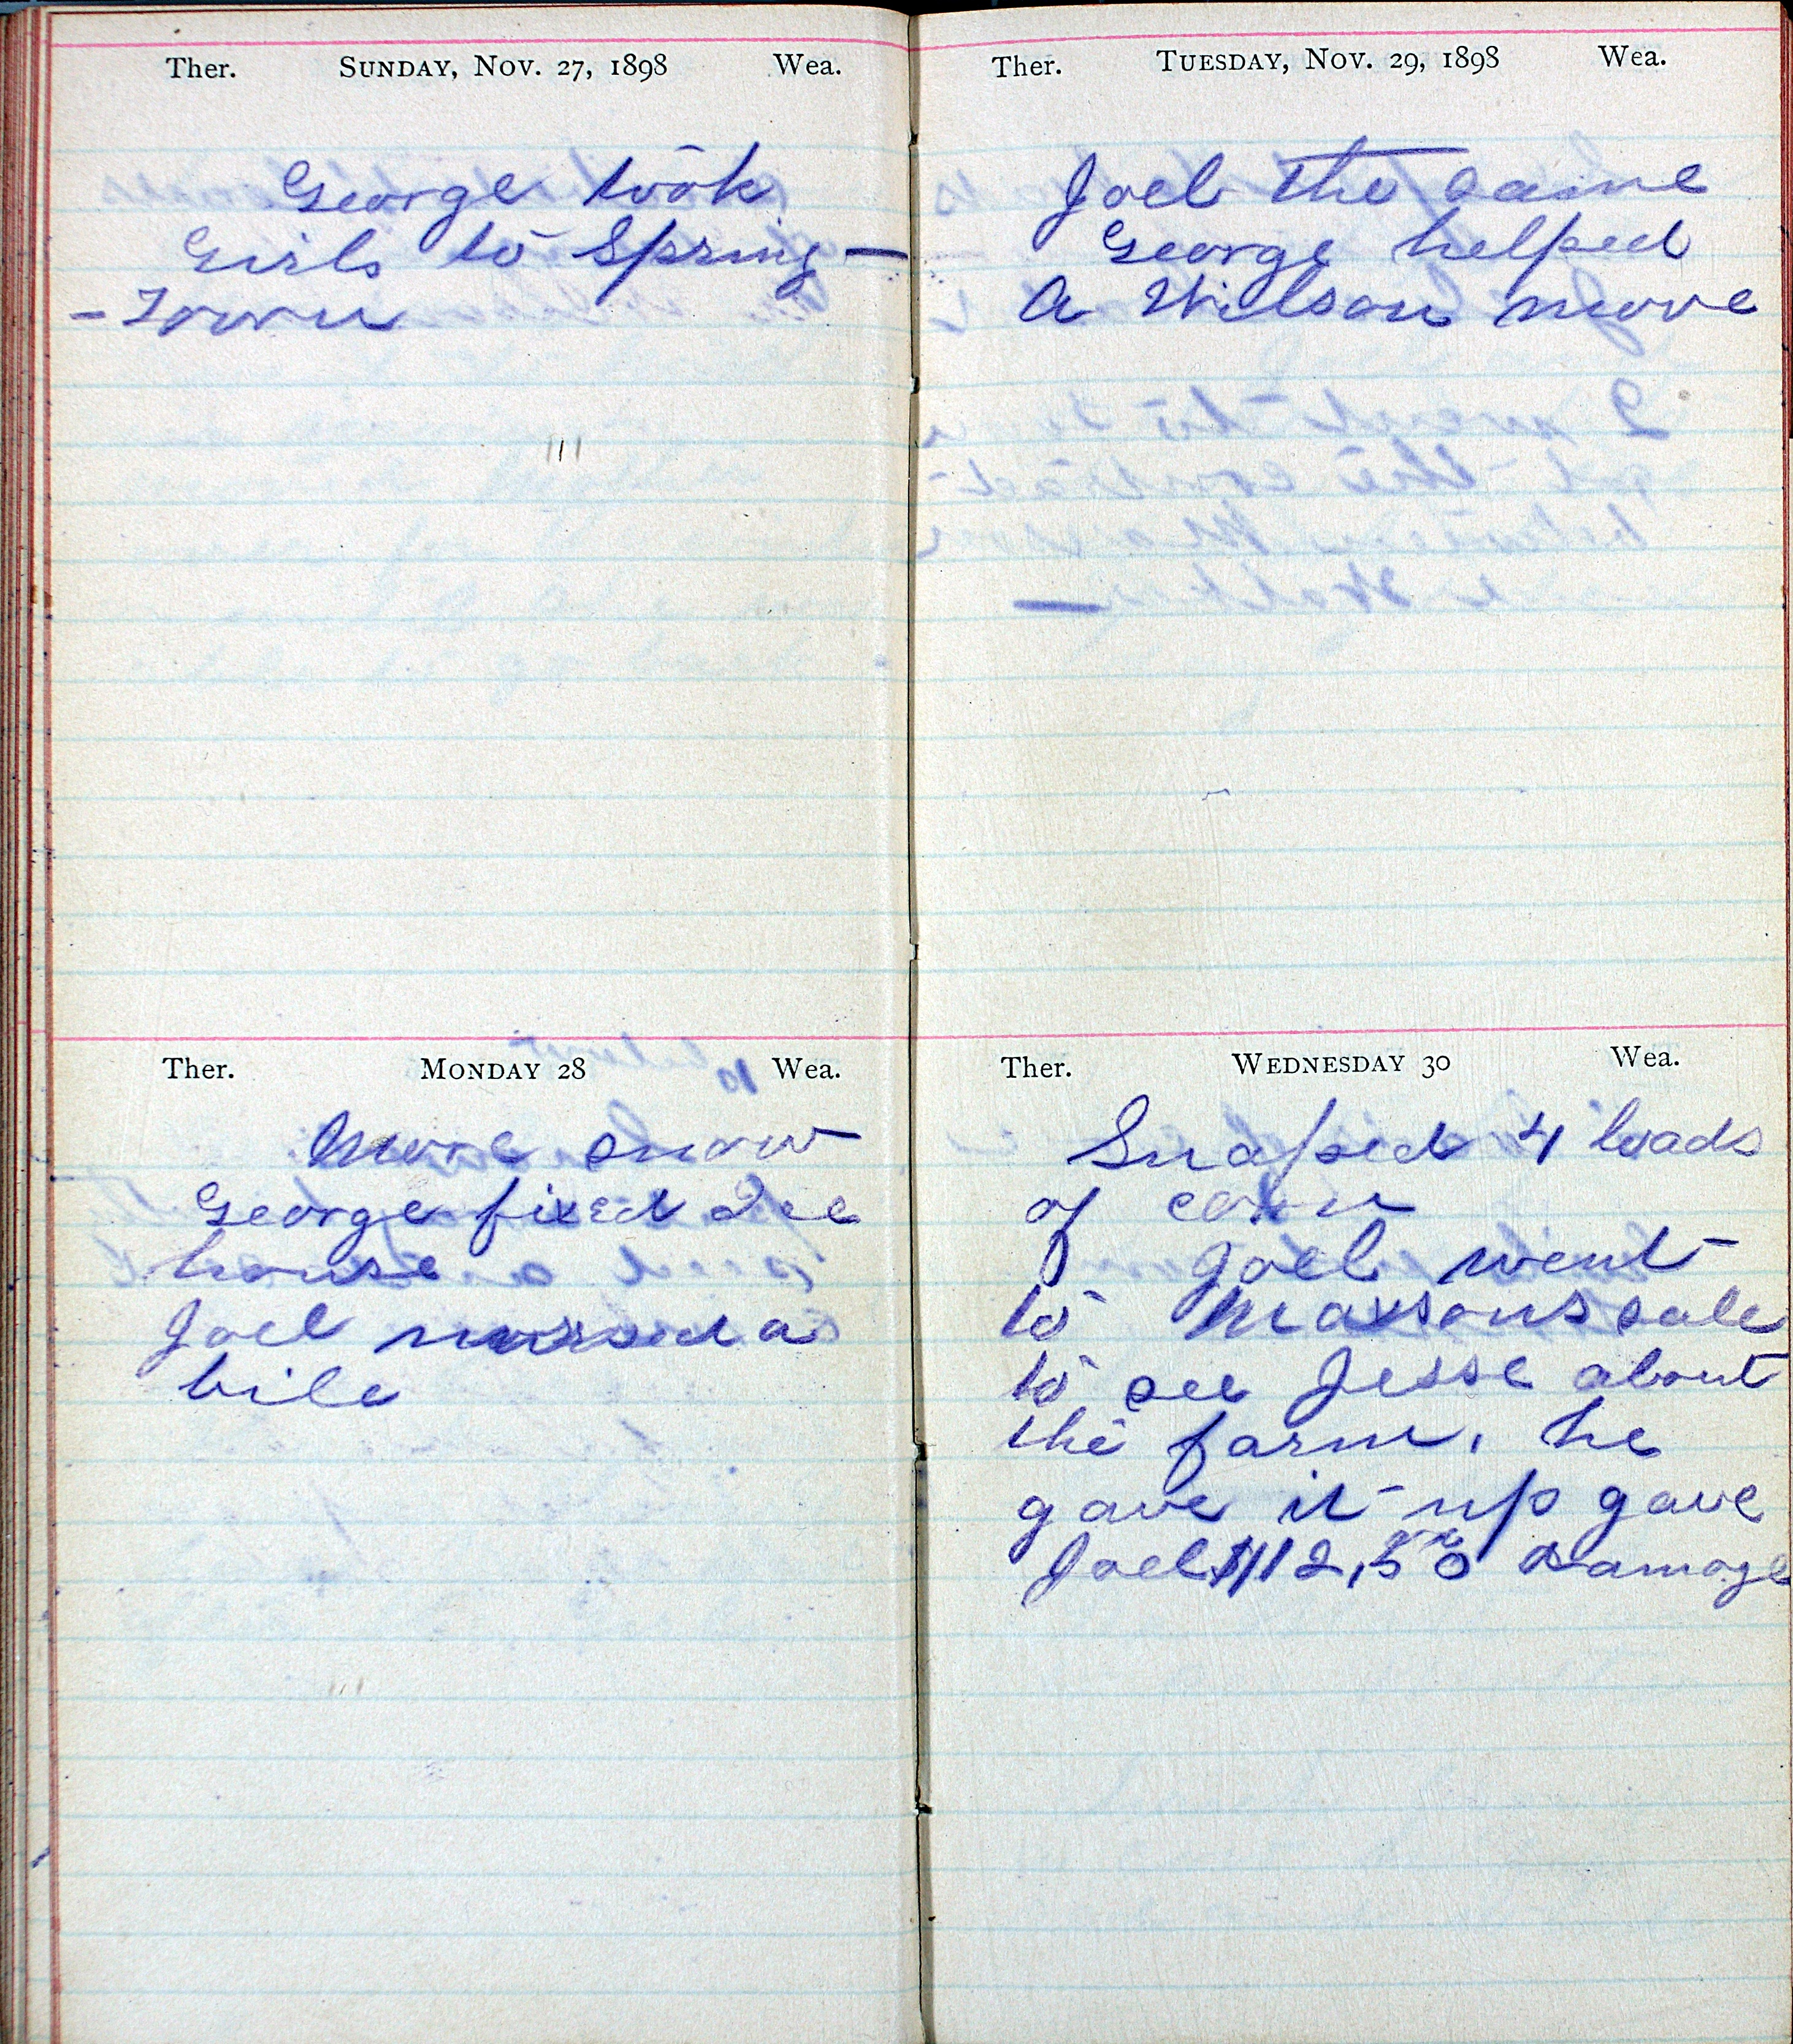 Ther. SUNDAY, NOV. 27, 1898 Wea.
George took
Girls to Spring—
-Town
Ther. MONDAY 28 Wea.
More snow
George fixed Ice
house
Joel nursed a
bile
Ther. TUESDAY, NOV. 29, 1898 Wea.
Joel the same
George helped
A Wilson move
Ther. WEDNESDAY 30 Wea.
Snaped 4 loads
of corn
Joel went
to Maxsons sale
to see Jesse about
the farm, he
gave it up gave
Joel $112,50 Damage